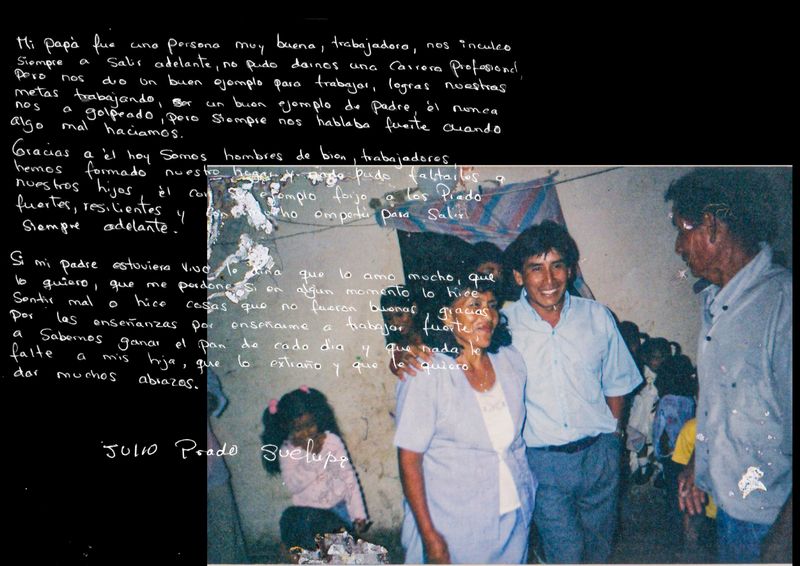 Mi papá fue una persona muy buena, trabajadora, nos inculco
Siempre a Salir adelante, no pudo darnos una Carrera Profesional,
Pero nos dio un buen ejemplo para trabajar, logras nuestras
metas trabajando, ser un buen ejemplo de padre, él nunca
nos a golpeado, pero Siempre nos hablaba fuerte cuando
algo mal haciamos.
Gracias a él hoy Somos hombres de bien, trabajadores
hemos formado nuestro hogar y nada pudo faltarles a
nuestros hijos, él con ejemplo forjo a los Prado
fuertes, resilientes y empetu para Salir
Siempre adelante.
Si mi padre estuviera vivo le diria que lo amo mucho, que
lo quiero, que me perdone Si en algun momento lo hice
Sentir mal o hice cosas que no fueron buenas, gracias
por las enseñanzas por enseñarme a trabajar fuerte
a Sabernos ganar el pan de cada dia y que nada le
falte a mis hija, que lo extraño y que le quiero
dar muchos abrazos.
JULIO Prado Suclupe